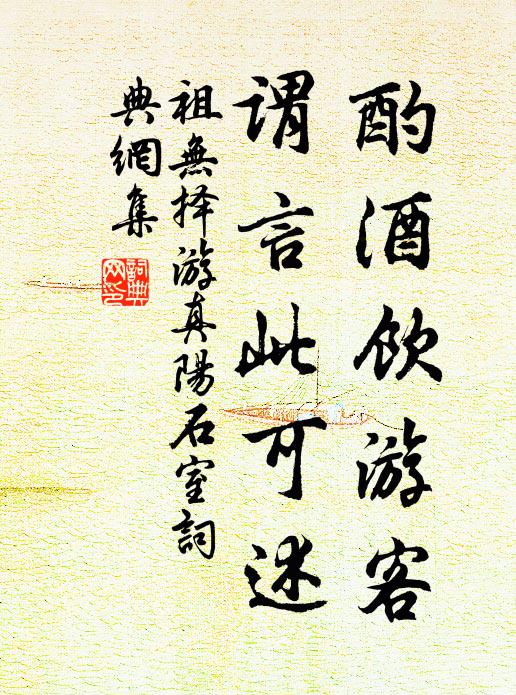 酌酒飲游客
谓言此可述
祖無择游真陽石室詞
典網集
詞典
网印